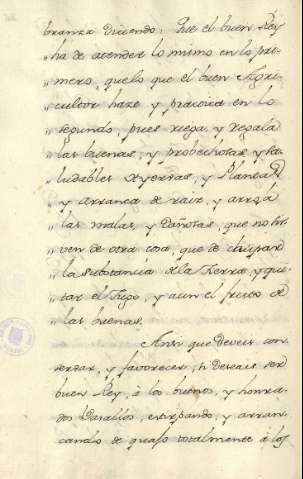 branza diciendo: Que el buen Rey
"ha de atender lo mismo en lo pri-
"mero, que lo que el buen Agri-
"cultor haze y practica en lo
"segundo, pues riega, y regala
"las buenas, y probechosas, y sa-
"ludables Yervas, y Plantas
"y arranca de raiz, y arroja
"las malas, y dañosas, que no sir-
"ven de otra cosa, que de chupar
"la substancia de la tierra, y qui-
"tar el Jugo, y aun el fruto de
"las buenas.
Assi que deveis con-
servar, y favorecer, si deseais ser
buen Rey, à los buenos, y honrra-
dos Vasallos, extirpando, y arran-
cando de totalmente à los